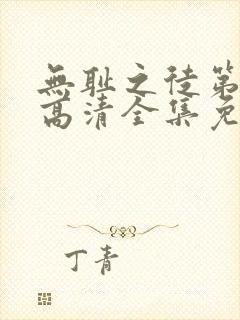 無耻之徒第
高清全集免
丁青